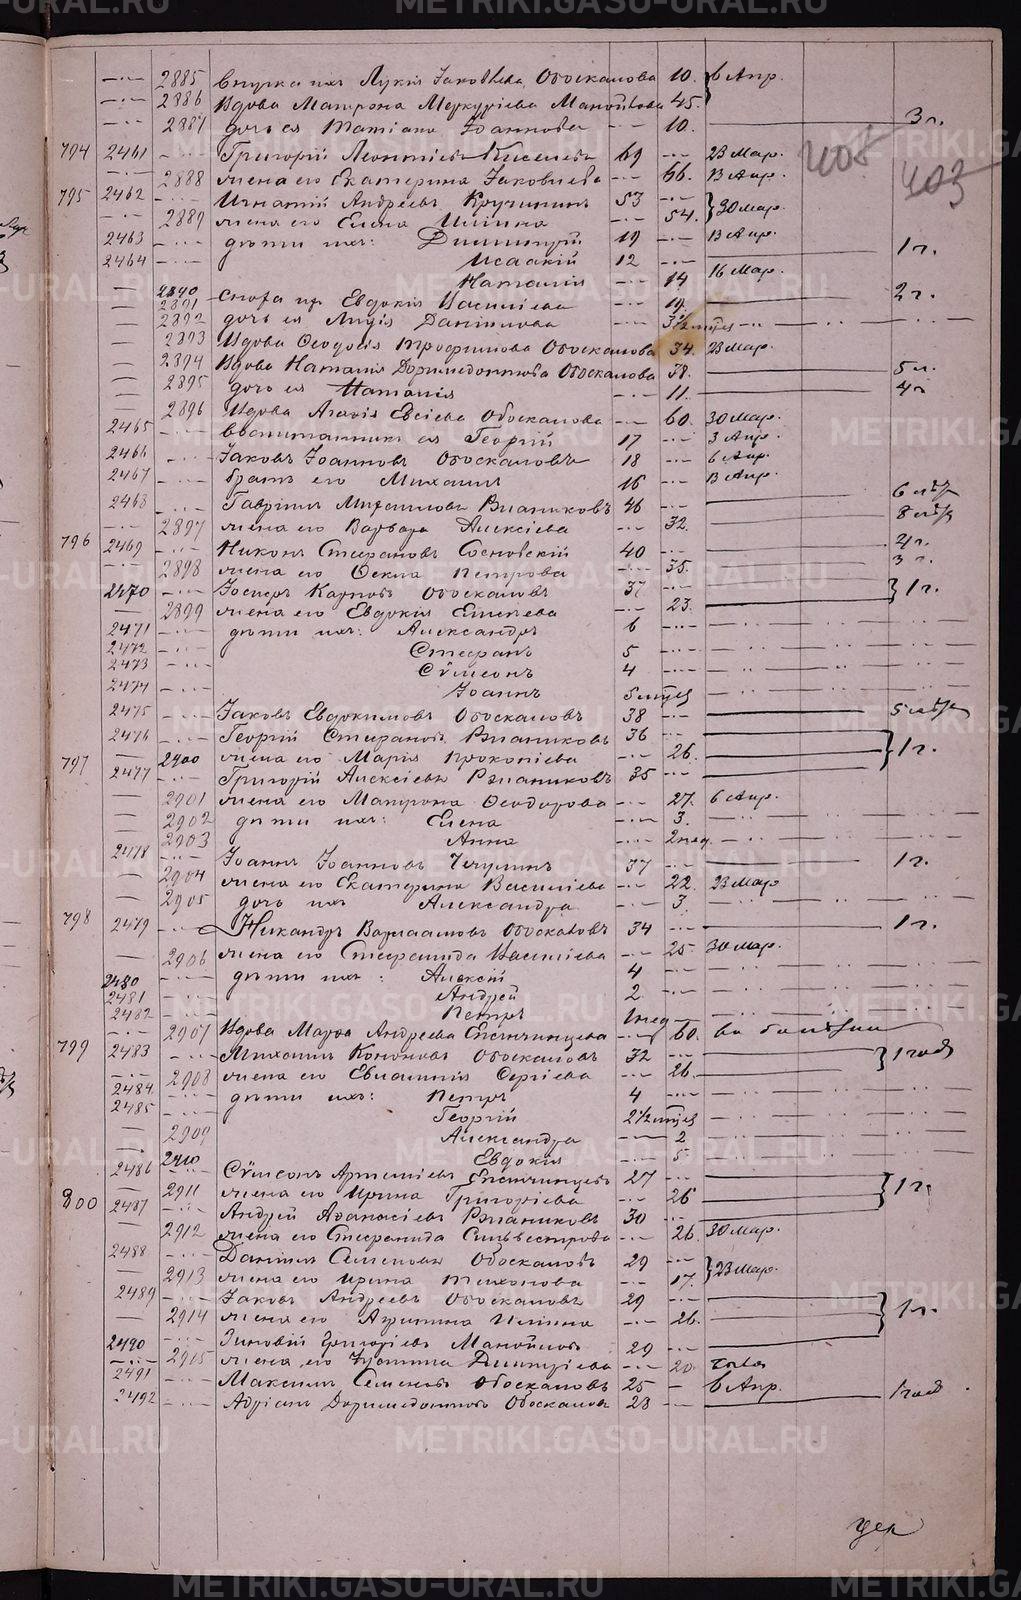 METRIKI.GASO-URAL.RU
2885 внучка ихъ Лукія Іаковлева Обоскалова 10. 6 Апр.
2886 Вдова Матрона Меркуріева Манойлова 45.
2887 дочь ея Татіана Іоаннова 10. 3 г.
408 403
794 2461 Григорій Леонтіевъ Киселевъ 69 23 Мар.
2888 жена его Екатерина Іаковлева 66. 13 Апр.
795 2462 Игнатій Андреевъ Кручининъ 53
2889 жена его Елена Ильина 54. 30 Мар.
2463 дѣти ихъ: Димитрій 19 13 Апр.
2464 Исаакій 12 1 г.
2890 Наталія 14 16 Мар.
2891 сноха их Евдокія Васильева 19. 2 г.
2892 дочь ея Лидія Даніилова 3 1/2 мѣс
2893 Вдова Ѳеодосія Трофимова Обоскалова 34. 23 Мар.
2894 Вдова Наталія Доримедонтова Обоскалова 38. 5 л.
2895 дочь ея Наталія 11. 4 г.
2896 Вдова Агафія Евсіева Обоскалова 60. 30 Мар.
2465 воспитанникъ ея Георгій 17 3 Апр.
2466 Іаковъ Іоанновъ Обоскаловъ 18 6 Апр.
2467 братъ его Михаилъ 16 13 Апр.
2468 Гавріилъ Михаиловъ Рѣпниковъ 46 6 лѣтъ
2897 жена его Варвара Алексіева 32. 8 лѣтъ
796 2469 Никонъ Стефановъ Сосновскій 40 2 г.
2898 жена его Ѳекла Петрова 35. 3 г.
2470 Іосифъ Карповъ Обоскаловъ 37 1 г.
2899 жена его Евдокія 23.
2471 дѣти ихъ: Александръ 6
2472 Стефанъ 5
2473 Сѵмеонъ 4
2474 Іоаннъ 5 мѣс
2475 Іаковъ Евдокимовъ Обоскаловъ 38 5 лѣтъ
2476 Георгій Стефановъ Рѣпниковъ 36
797 2900 жена его Марія Прокопіева 26. 1 г.
2477 Григорій Алексіевъ Рѣпниковъ 35
2901 жена его Матрона Ѳеодорова 27. 6 Апр.
2902 дѣти ихъ: Елена 3.
2903 Анна 2 нед.
2478 Іоаннъ Іоанновъ Чечулинъ 37 1 г.
2904 жена его Екатерина Васильева 22. 23 Мар
2905 дочь ихъ Александра 3.
798 2479 Никандръ Варлаамовъ Обоскаловъ 34 1 г.
2906 жена его Стефанида Васильева 25 30 Мар.
2480 дѣти ихъ: Алексій 4
2481 Андрей 2
2482 Петръ 1 нед
2907 Вдова Марѳа Андреева 60. въ болѣзни
799 2483 Михаилъ Кононовъ Обоскаловъ 32 1 годъ
2908 жена его Евлампія Сергіева 26.
2484 дѣти ихъ: Петръ 4
2485 Георгій 2 1/2 мѣс
2909 Александра 2
2910 Евдокія 5
2486 Сѵмеонъ Артеміевъ 27
2911 жена его Ирина Григоріева 26 1 г.
800 2487 Андрей Аѳанасіевъ Рѣпниковъ 30
2912 жена его Стефанида Сильвестрова 26. 30 Мар.
2488 Даніилъ Семеновъ Обоскаловъ 29
2913 жена его Ирина Тихонова 17. 23 Мар.
2489 Іаковъ Андреевъ Обоскаловъ 29
2914 жена его Агрипина Ильина 26. 1 г.
2490 Зиновій Григоріевъ Манойловъ 29
2915 жена его Димитріева 20.
2491 Максимъ Семеновъ Обоскаловъ 25 6 Апр.
2492 Адріанъ Доримедонтовъ Обоскаловъ 23 1 годъ
METRIKI.GASO-URAL.RU